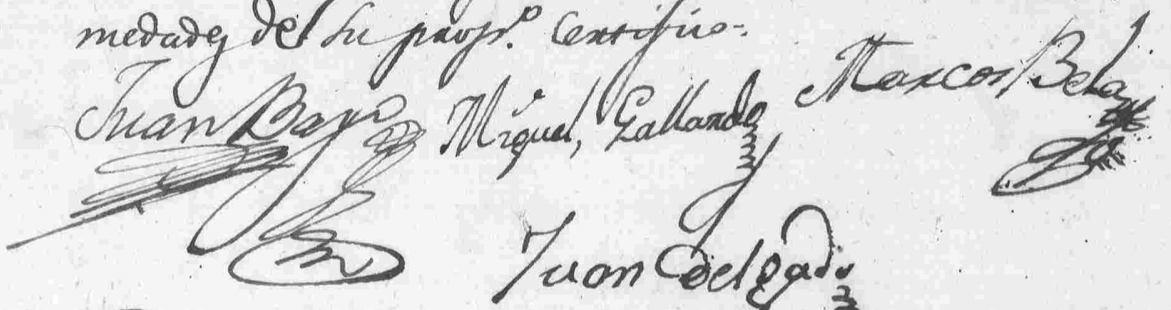 medades de su prof.ⁿ Certifico.
Juan Bayo Miguel, Gallardo Marcos Bela
Juan Delgado